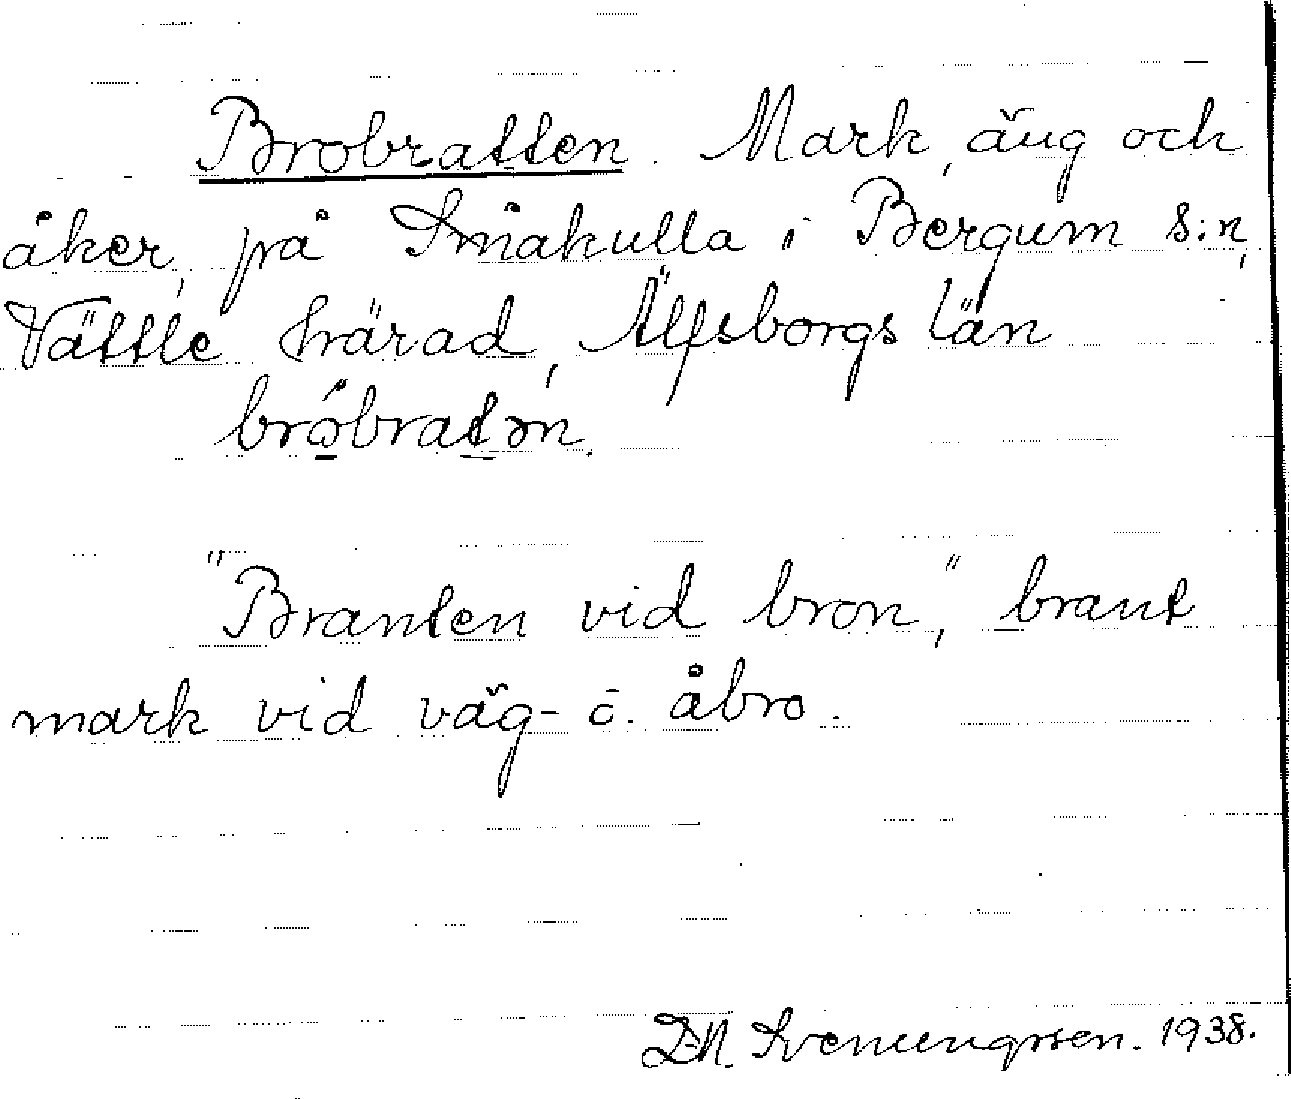 Brobratten. Mark, äng och
åker, på Småkulla i Bergum s:n,
Vättle härad, Älfsborgs län
bróbratən.
"Branten vid bron," brant
mark vid väg- o. åbro.
D.N. Svenungsson. 1938.